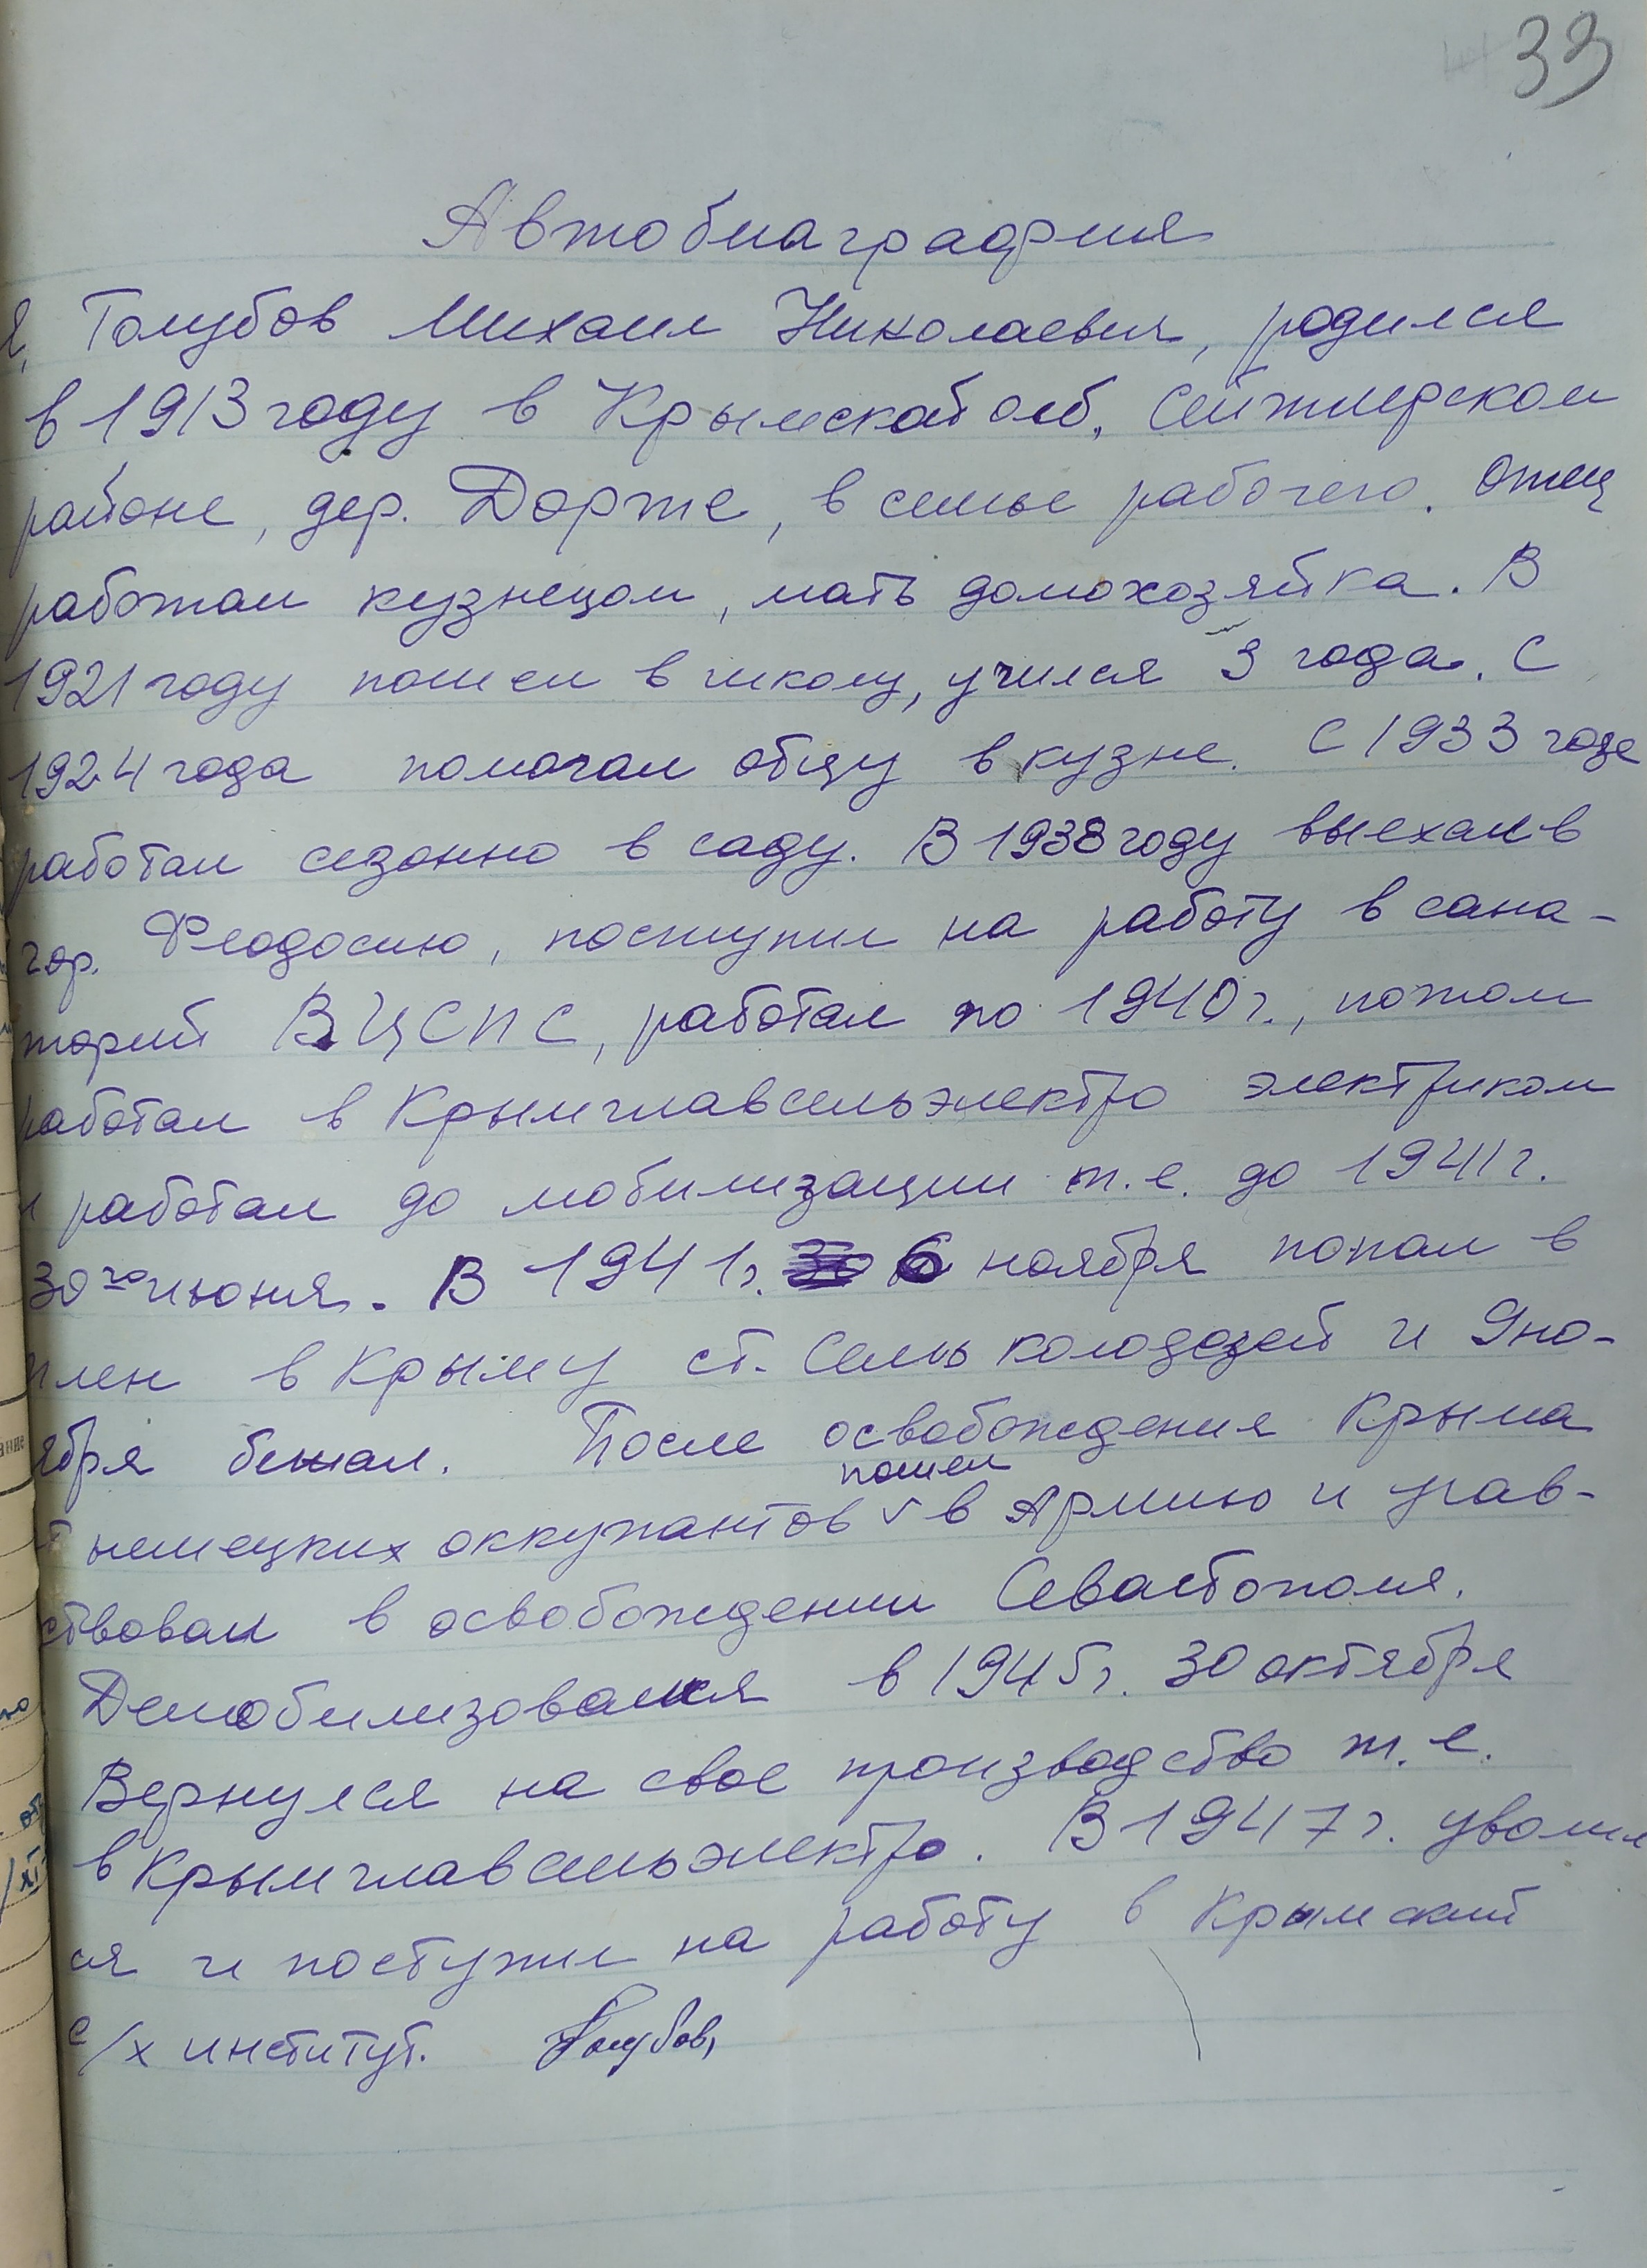 33
Автобиаграфия
Я, Голубов Михаил Николаевич, родился
в 1913 году в Крымской обл. Сейтлерском
районе, дер. Дорте, в семье рабочего. Отец
работал кузнецом, мать домохозяйка. В
1921 году пошел в школу, учился 3 года. С
1924 года помогал отцу в кузне. С 1933 года
работал сезонно в саду. В 1938 году выехал в
гор. Феодосию, поступил на работу в сана-
торий ВЦСПС, работал по 1940 г., потом
работал в Крымглавсельэлектро электриком
и работал до мобилизации т.е. до 1941 г.
30го июня. В 1941 г. 6 ноября попал в
плен в Крыму ст. Семь колодезей и 9 но-
ября бежал. После освобождения Крыма
пошел
от немецких оккупантов v в Армию и учав-
ствовал в освобождении Севастополя.
Демобилизовался в 1945 г. 30 октября
Вернулся на свое производство т.е.
в Крымглавсельэлектро. В 1947 г. уволил
ся и поступил на работу в Крымский
с/х институт. Голубов,